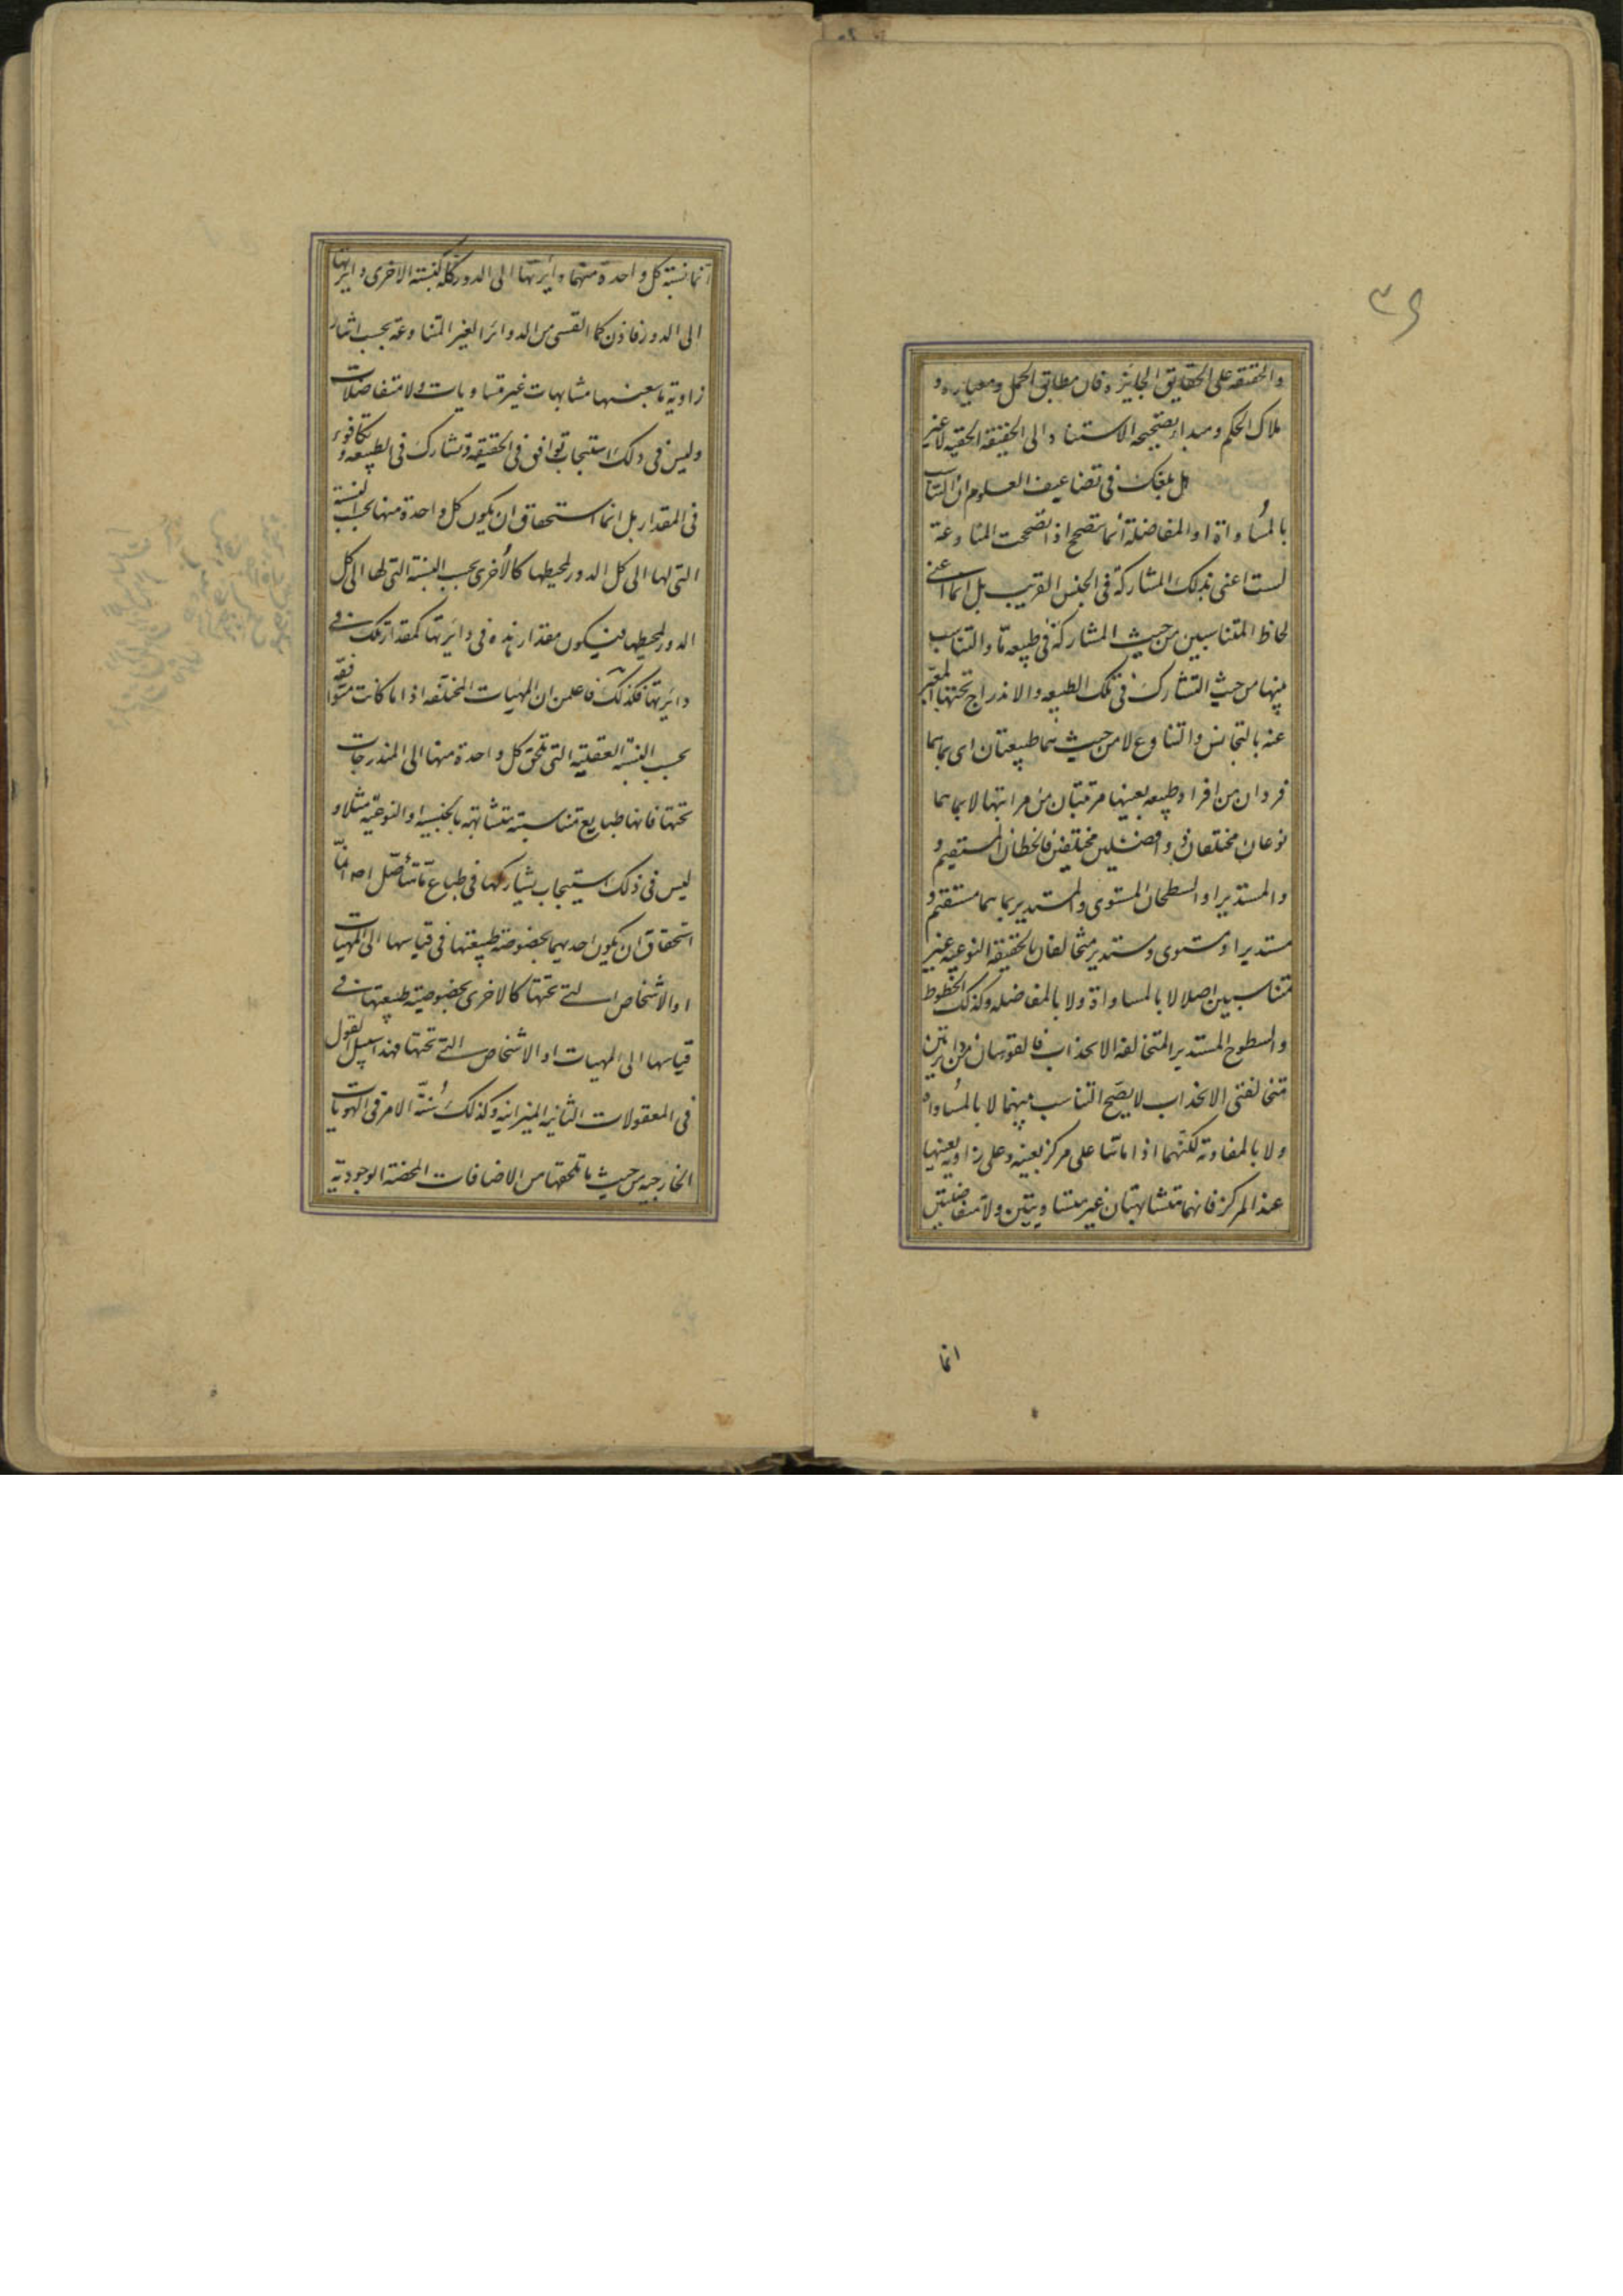 والحقيقة على الحقايق الجايزه فان مطابق الحمل ومعياره و
ملاك الحكم ومبدأ تصحيحه الاستناد الى الحقيقة الحقيه لا غير
هل بلغك فى تضاعيف العلوم ان التناسب
بالمساواة او المفاضلة انما يتصحح اذا تصححت المتناوعة
لست اعنى بذلك المشاركة فى الجنس القريب بل انما اعنى
لحاظ المتناسبين من حيث المشاركة فى طبيعه ما والتناسب
بينهما من حيث التشارك فى تلك الطبيعه والاندراج تحتها المعبر
عنه بالتجانس والتناوع لا من حيث هما طبيعتان اى بما هما
فردان من افراد طبيعه بعينها مرتبتان من مراتبها لا بما هما
نوعان مختلفان ذوا فصلين مختلفين فالخطان المستقيم و
والمستدير او السطحان المستوى والمستدير بما هما مستقيم و
مستدير او مستوى ومستدير متخالفان بالحقيقة النوعيه غير
متناسبين اصلا لا بالمساواة ولا بالمفاضله وكذلك الخطوط
والسطوح المستدير المتخالفه الانحذاب فالقوسان من دائرتين
متخالفتى الانحذاب لا يصح التناسب بينهما لا بالمساواه
ولا بالمفاوته لكنهما اذا ماتتا على مركز بعينه وعلى زاويه بعينها
عند المركز فانهما متشابهتان غير متساويتين ولا متفاضلتين
انما
انما نسبة كل واحدة منهما دائرتها الى الدور كله كنسبته الاخرى دايرتها
الى الدور فاذن كما القسى من الدوائر الغير المتناوعة بحسب اثنار
زاوية ما بعينها متشابهات غير متساويات ولا متفاضلات
وليس فى ذلك استيجاب توافق فى الحقيقة وتشارك فى الطبيعه و تكافوء
فى المقدار بل انما استحقاق ان يكون كل واحدة منها بحسب النسبة
التى لها الى كل الدور لمحيطها كالاخرى بحسب النسبة التى لها الى كل
الدور لمحيطها فيكون مقدار هذه فى دايرتها كمقدار تلك فى
دايرتها فكذلك فاعلمن ان المهيات المختلفه اذا ما كانت متوافقه
بحسب النسبة العقلية التى تلحق كل واحدة منها الى المندرجات
تحتها فانها طبايع متناسبته متشابهه بالجنسيه او النوعيه مثلا و
ليس فى ذلك استيجاب يشاركها فى طباع ما متاصل اصلا انما
استحقاق ان يكون احديهما بخصوصة طبيعتها فى قياسها الى المهيات
او الاشخاص التى تحتها كالاخرى بخصوصيته طبيعتها فى
قياسها الى المهيات او الاشخاص التى تحتها فهذا سبيل القول
فى المعقولات الثانيه الميزانيه وكذلك سنة الامر فى الهويات
الخارجيه من حيث ما تلحقها من الاضافات المحضة الوجودية